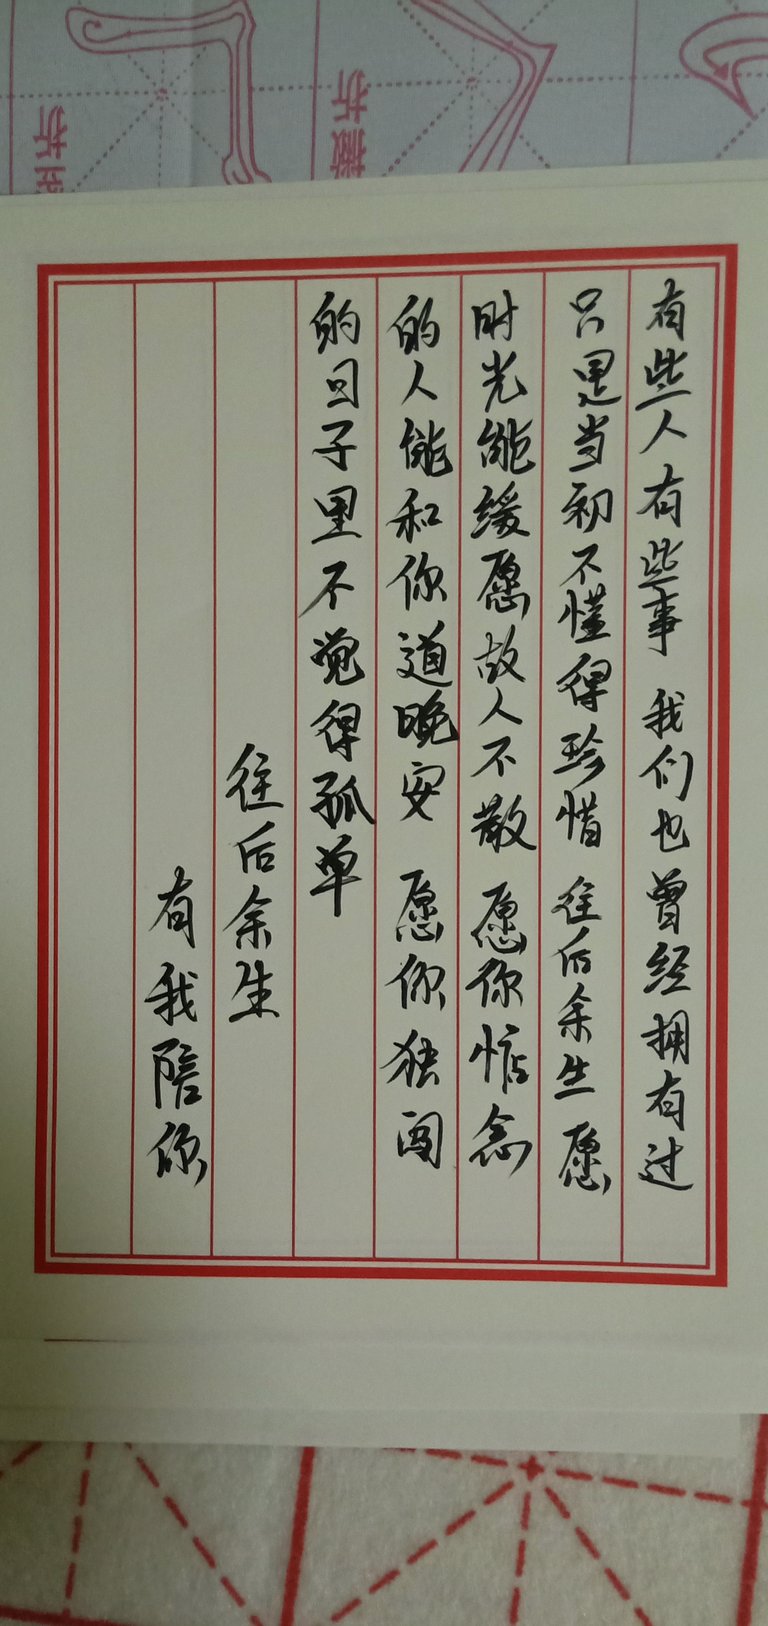 有些人有些事 我们也曾经拥有过
只是当初不懂得珍惜 往后余生 愿
时光能缓愿故人不散 愿你惦念
的人能和你道晚安 愿你独闯
的日子里不觉得孤单
往后余生
有我陪你